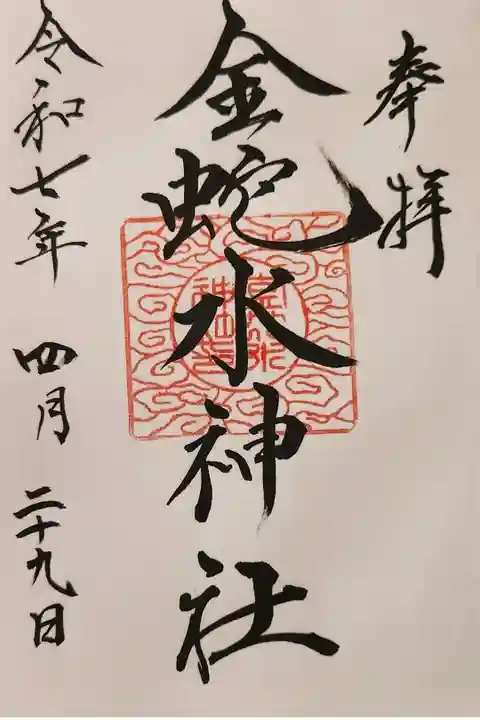 奉拝
金蛇水神社
令和七年 四月 二十九日